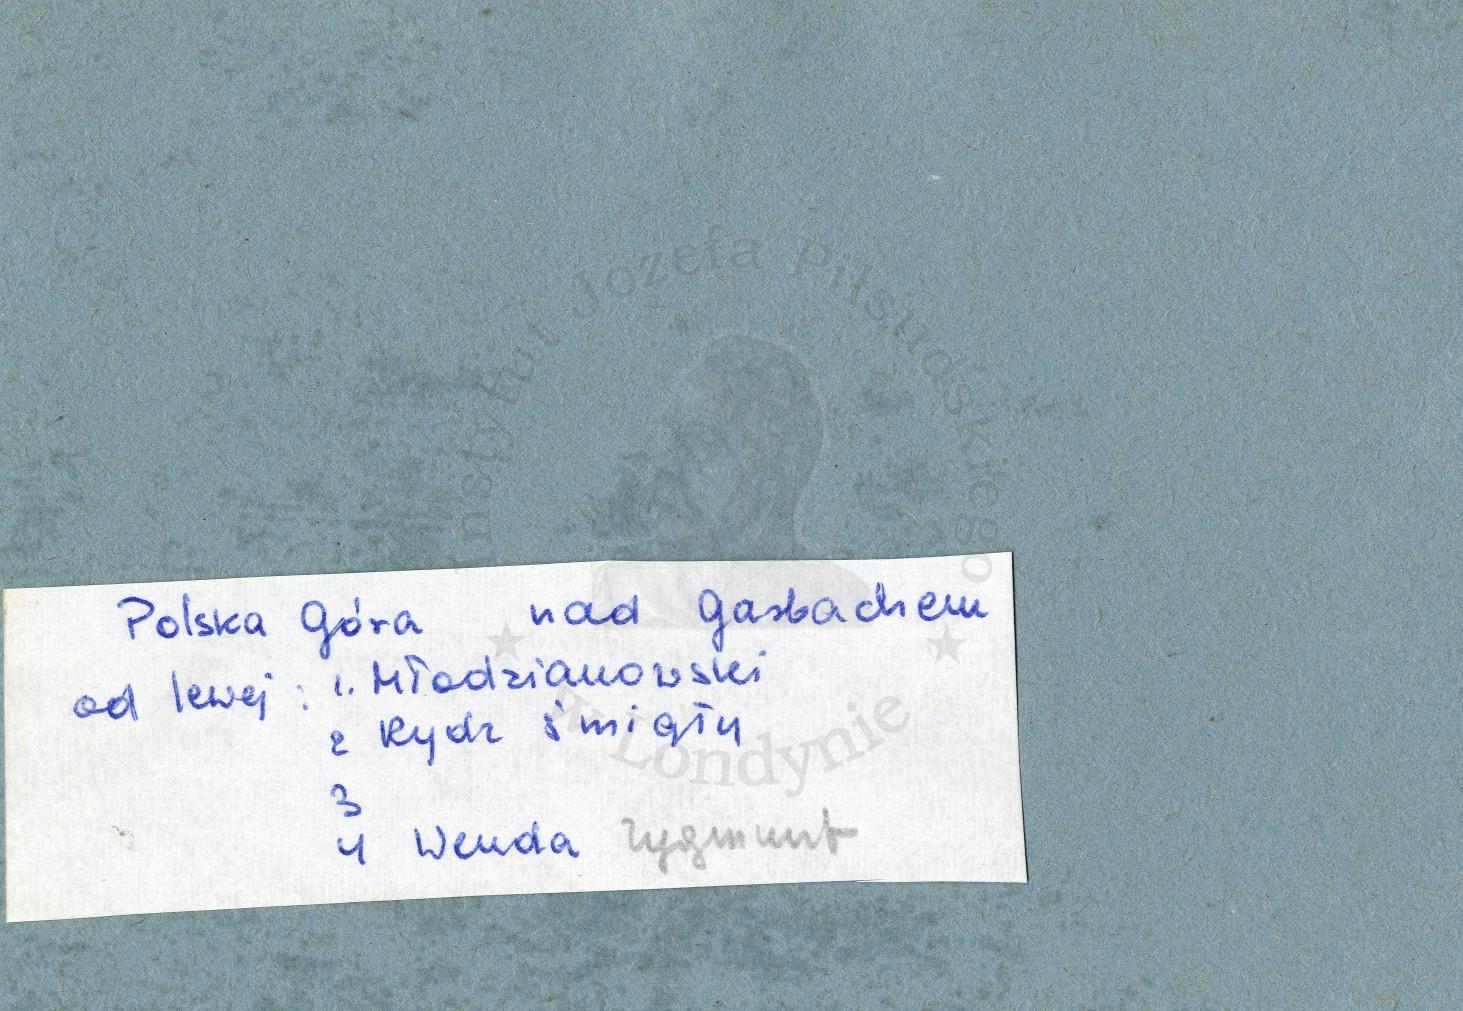 Instytut Józefa Piłsudskiego
w Londynie
Polska Góra nad Garbachem
od lewej: 1. Młodzianowski
2 Rydz Śmigły
3
4 Wenda Zygmunt